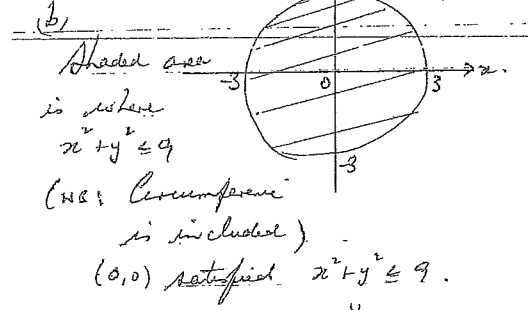 (b)
Shaded area
-3 0 3 x.
is where
x² + y² ≤ 9
-3
(NB: Circumference
is included)
(0,0) satisfied x² + y² ≤ 9.